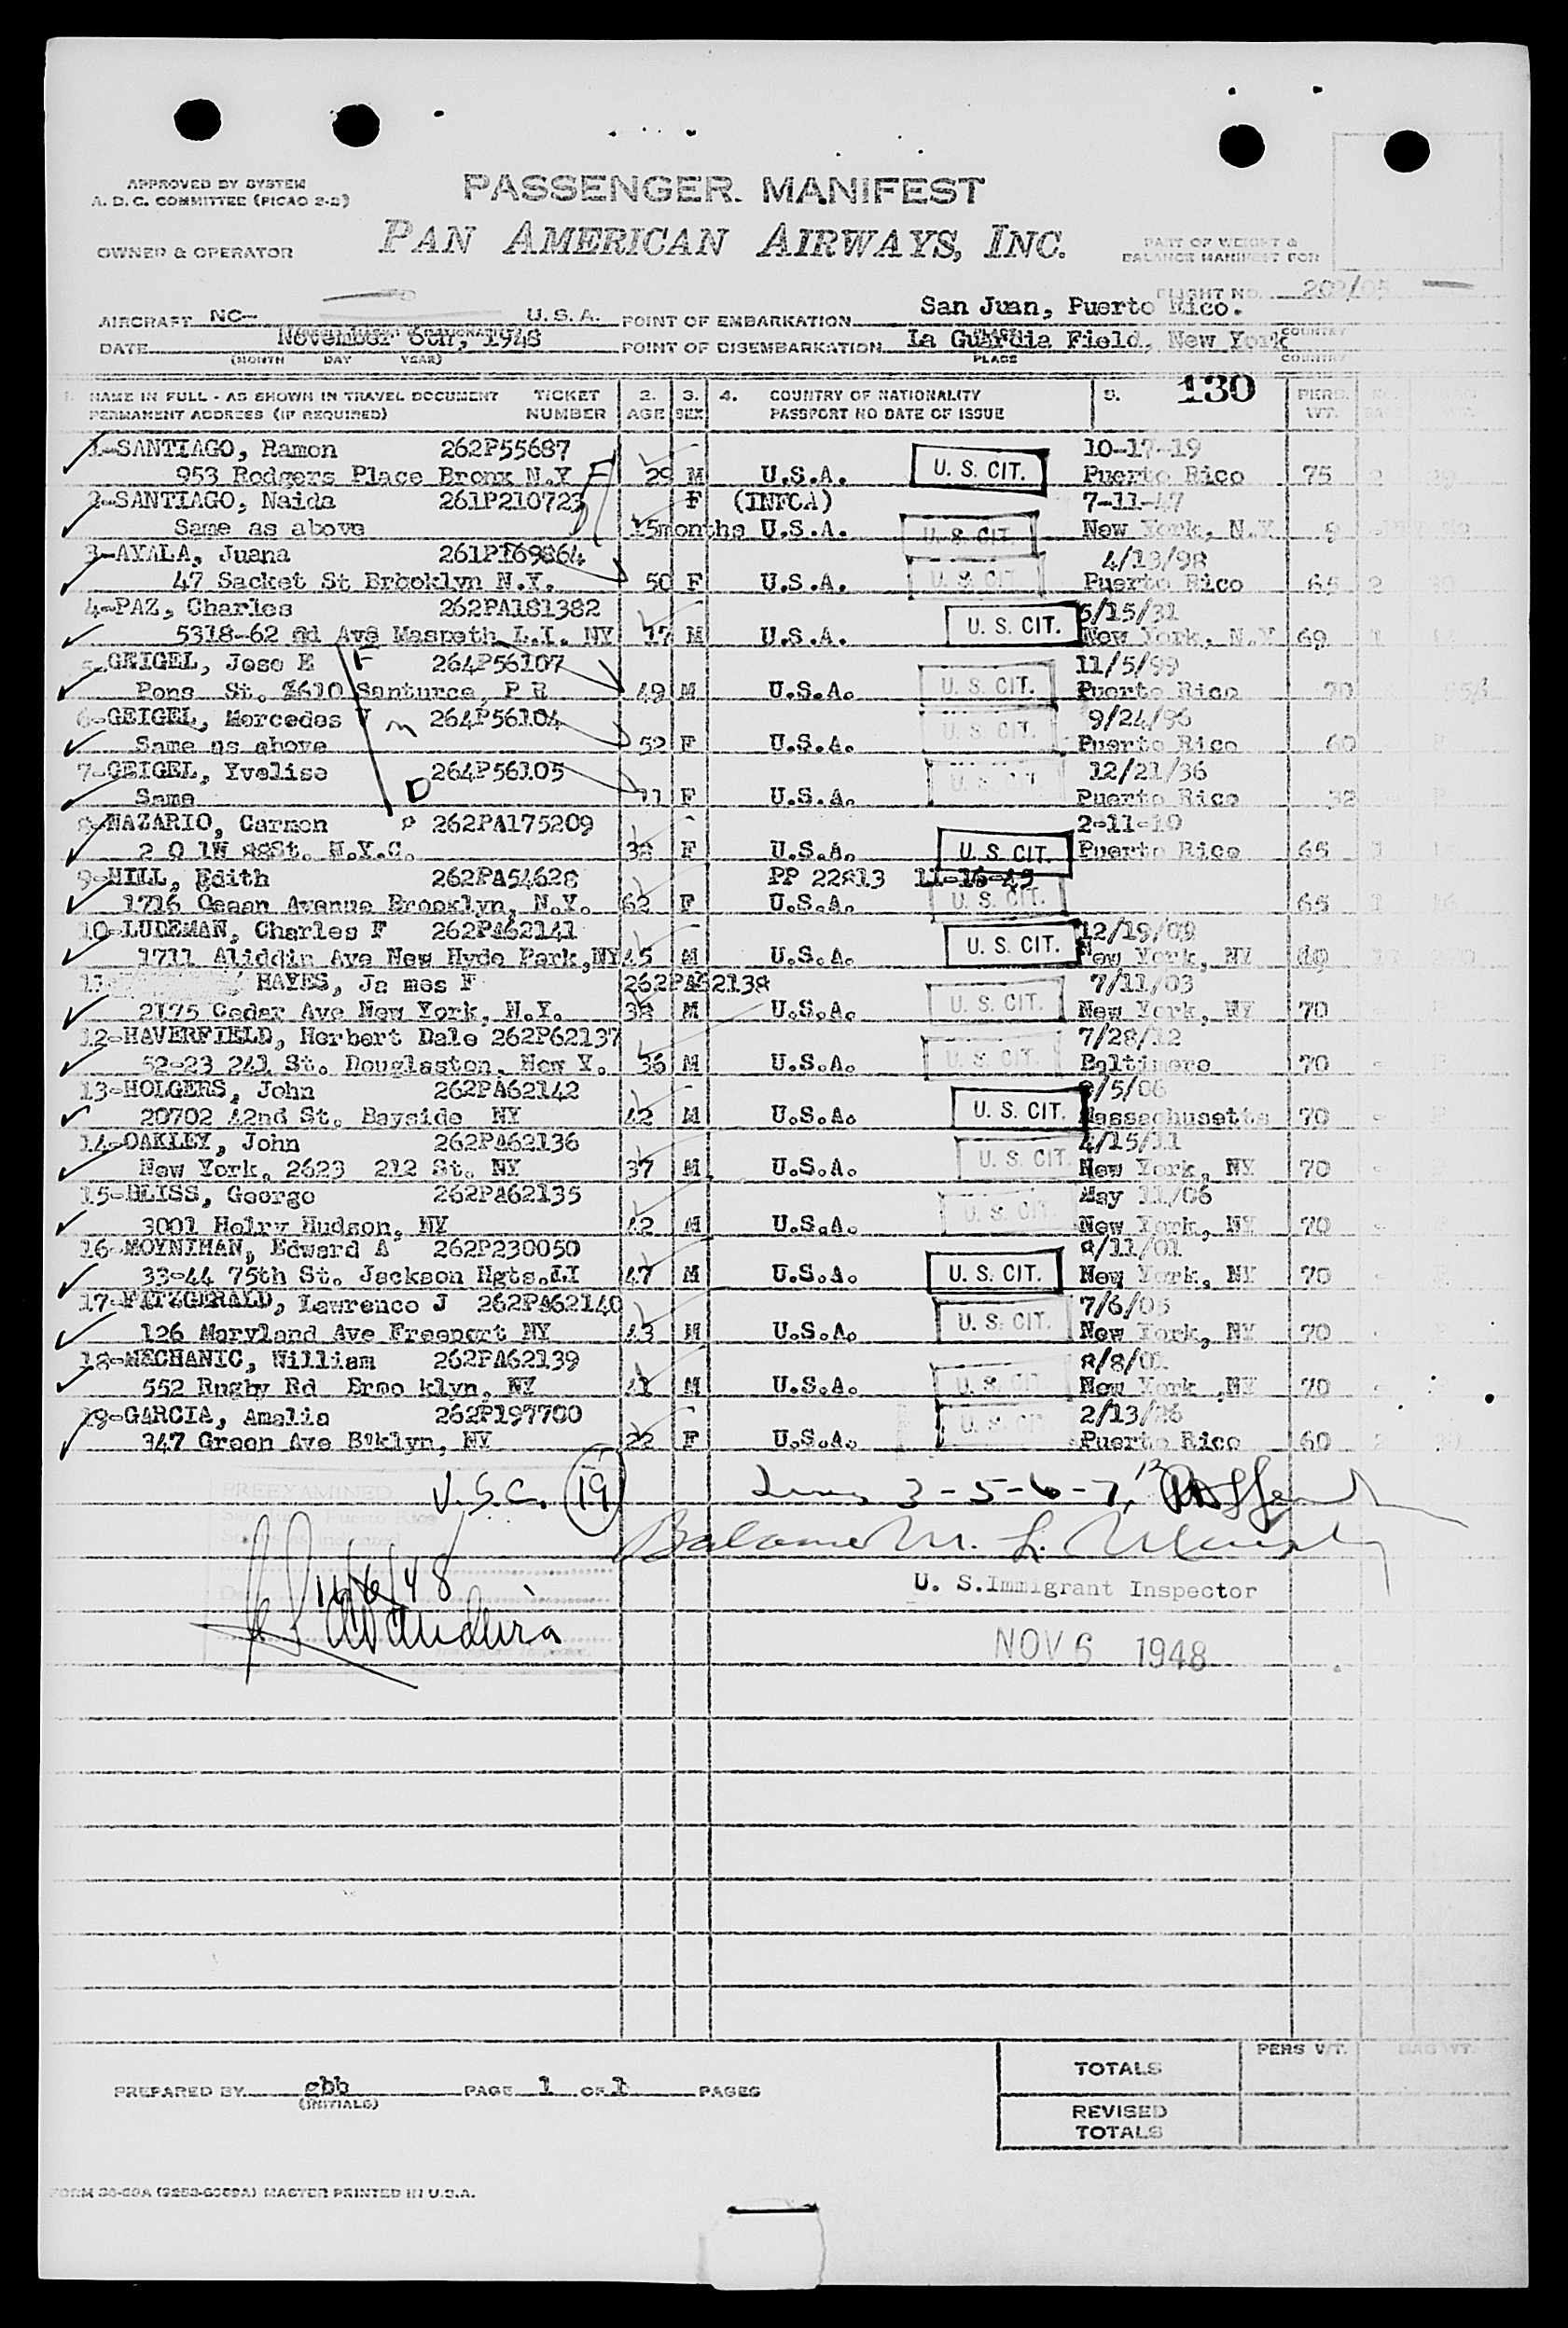 APPROVED BY SYSTEM
A. D. C. COMMITTEE (PICAO 2-2)
PASSENGER MANIFEST
OWNER & OPERATOR
PAN AMERICAN AIRWAYS, INC.
PART OF WEIGHT &
BALANCE MANIFEST FOR
FLIGHT NO.
AIRCRAFT NC- U.S.A. POINT OF EMBARKATION San Juan, Puerto Rico.
DATE November 6th, 1948 POINT OF DISEMBARKATION La Guardia Field, New York
(MONTH DAY YEAR) PLACE COUNTRY
1. NAME IN FULL - AS SHOWN IN TRAVEL DOCUMENT TICKET 2. 3. 4. COUNTRY OF NATIONALITY 5. 130 PERS.
PERMANENT ADDRESS (IF REQUIRED) NUMBER AGE SEX PASSPORT NO DATE OF ISSUE WT.
1-SANTIAGO, Ramon 262P55687 10-17-19
953 Rodgers Place Bronx N.Y F 29 M U.S.A. U. S. CIT. Puerto Rico 75 2
2-SANTIAGO, Naida 261P210723 F (INFCA) 7-11-47
Same as above 15months U.S.A. U. S. CIT. New York, N.Y 9
3-AYALA, Juana 261P169864 4/13/98
47 Sacket St Brooklyn N.Y. 50 F U.S.A. U. S. CIT. Puerto Rico 65 2
4-PAZ, Charles 262PA181382 5/15/31
5318-62 nd Ave Maspeth L.I. NY 17 M U.S.A. U. S. CIT. New York, N.Y 69 1
5-GEIGEL, Jose E F 264P56107 11/5/99
Pons St. #610 Santurce, P R 49 M U.S.A. U. S. CIT. Puerto Rico 70
6-GEIGEL, Mercedes V m 264P56104 9/24/96
Same as above 52 F U.S.A. U. S. CIT. Puerto Rico 60
7-GEIGEL, Yvelise D 264P56105 12/21/36
Same 11 F U.S.A. U. S. CIT Puerto Rico 32
8-NAZARIO, Carmen P 262PA175209 2-11-10
2 0 1W 88St. N.Y.C. 38 F U.S.A. U. S. CIT. Puerto Rico 65 1
9-HILL, Edith 262PA54628 PP 22813 11-16-45
1716 Ocean Avenue Brooklyn, N.Y. 62 F U.S.A. U. S. CIT. 65 1 16
10-LUDEMAN, Charles F 262PA62141 12/19/09
1711 Aliddin Ave New Hyde Park, NY 45 M U.S.A. U. S. CIT. New York, NY
11 HAYES, Ja mes F 262PA62138 7/11/03
2175 Cedar Ave New York, N.Y. 38 M U.S.A. U. S. CIT. New York, NY 70
12-HAVERFIELD, Herbert Dale 262P62137 7/28/12
52-23 241 St. Douglaston, New Y. 36 M U.S.A. U. S. CIT. Baltimore 70
13-HOLGERS, John 262PA62142 /5/06
20702 42nd St. Bayside NY 42 M U.S.A. U. S. CIT. Massachusetts 70
14-OAKLEY, John 262PA62136 4/15/11
New York, 2623 212 St. NY 37 M U.S.A. U. S. CIT New York, NY 70
15-BLISS, George 262PA62135 May 11/06
3001 Helry Hudson, NY 42 M U.S.A. U. S. CIT New York, NY 70
16-MOYNIHAN, Edward A 262P230050 8/11/01
33-44 75th St. Jackson Hgts.LI 47 M U.S.A. U. S. CIT. New York, NY 70
17-FITZGERALD, Lawrence J 262PA62140 7/6/05
126 Maryland Ave Freeport NY 43 M U.S.A. U. S. CIT. New York, NY 70
18-MECHANIC, William 262PA62139 8/8/01
552 Rugby Rd Broo klyn, NY 41 M U.S.A. U. S. CIT New York ,NY 70
19-GARCIA, Amalia 262P197700 2/13/26
347 Green Ave B'klyn, NY 22 F U.S.A. U. S. CIT Puerto Rico 60 2
U.S.C. 19 3-5-6-7, 12
PREEXAMINED
Puerto Rico
Balance M. L.
11/6/48
U. S. Immigrant Inspector
NOV 6 1948
PREPARED BY cbb PAGE 1 OF 1 PAGES
(INITIALS)
PERS WT. BAG WT.
TOTALS
REVISED
TOTALS
FORM 30-60A MASTER PRINTED IN U.S.A.